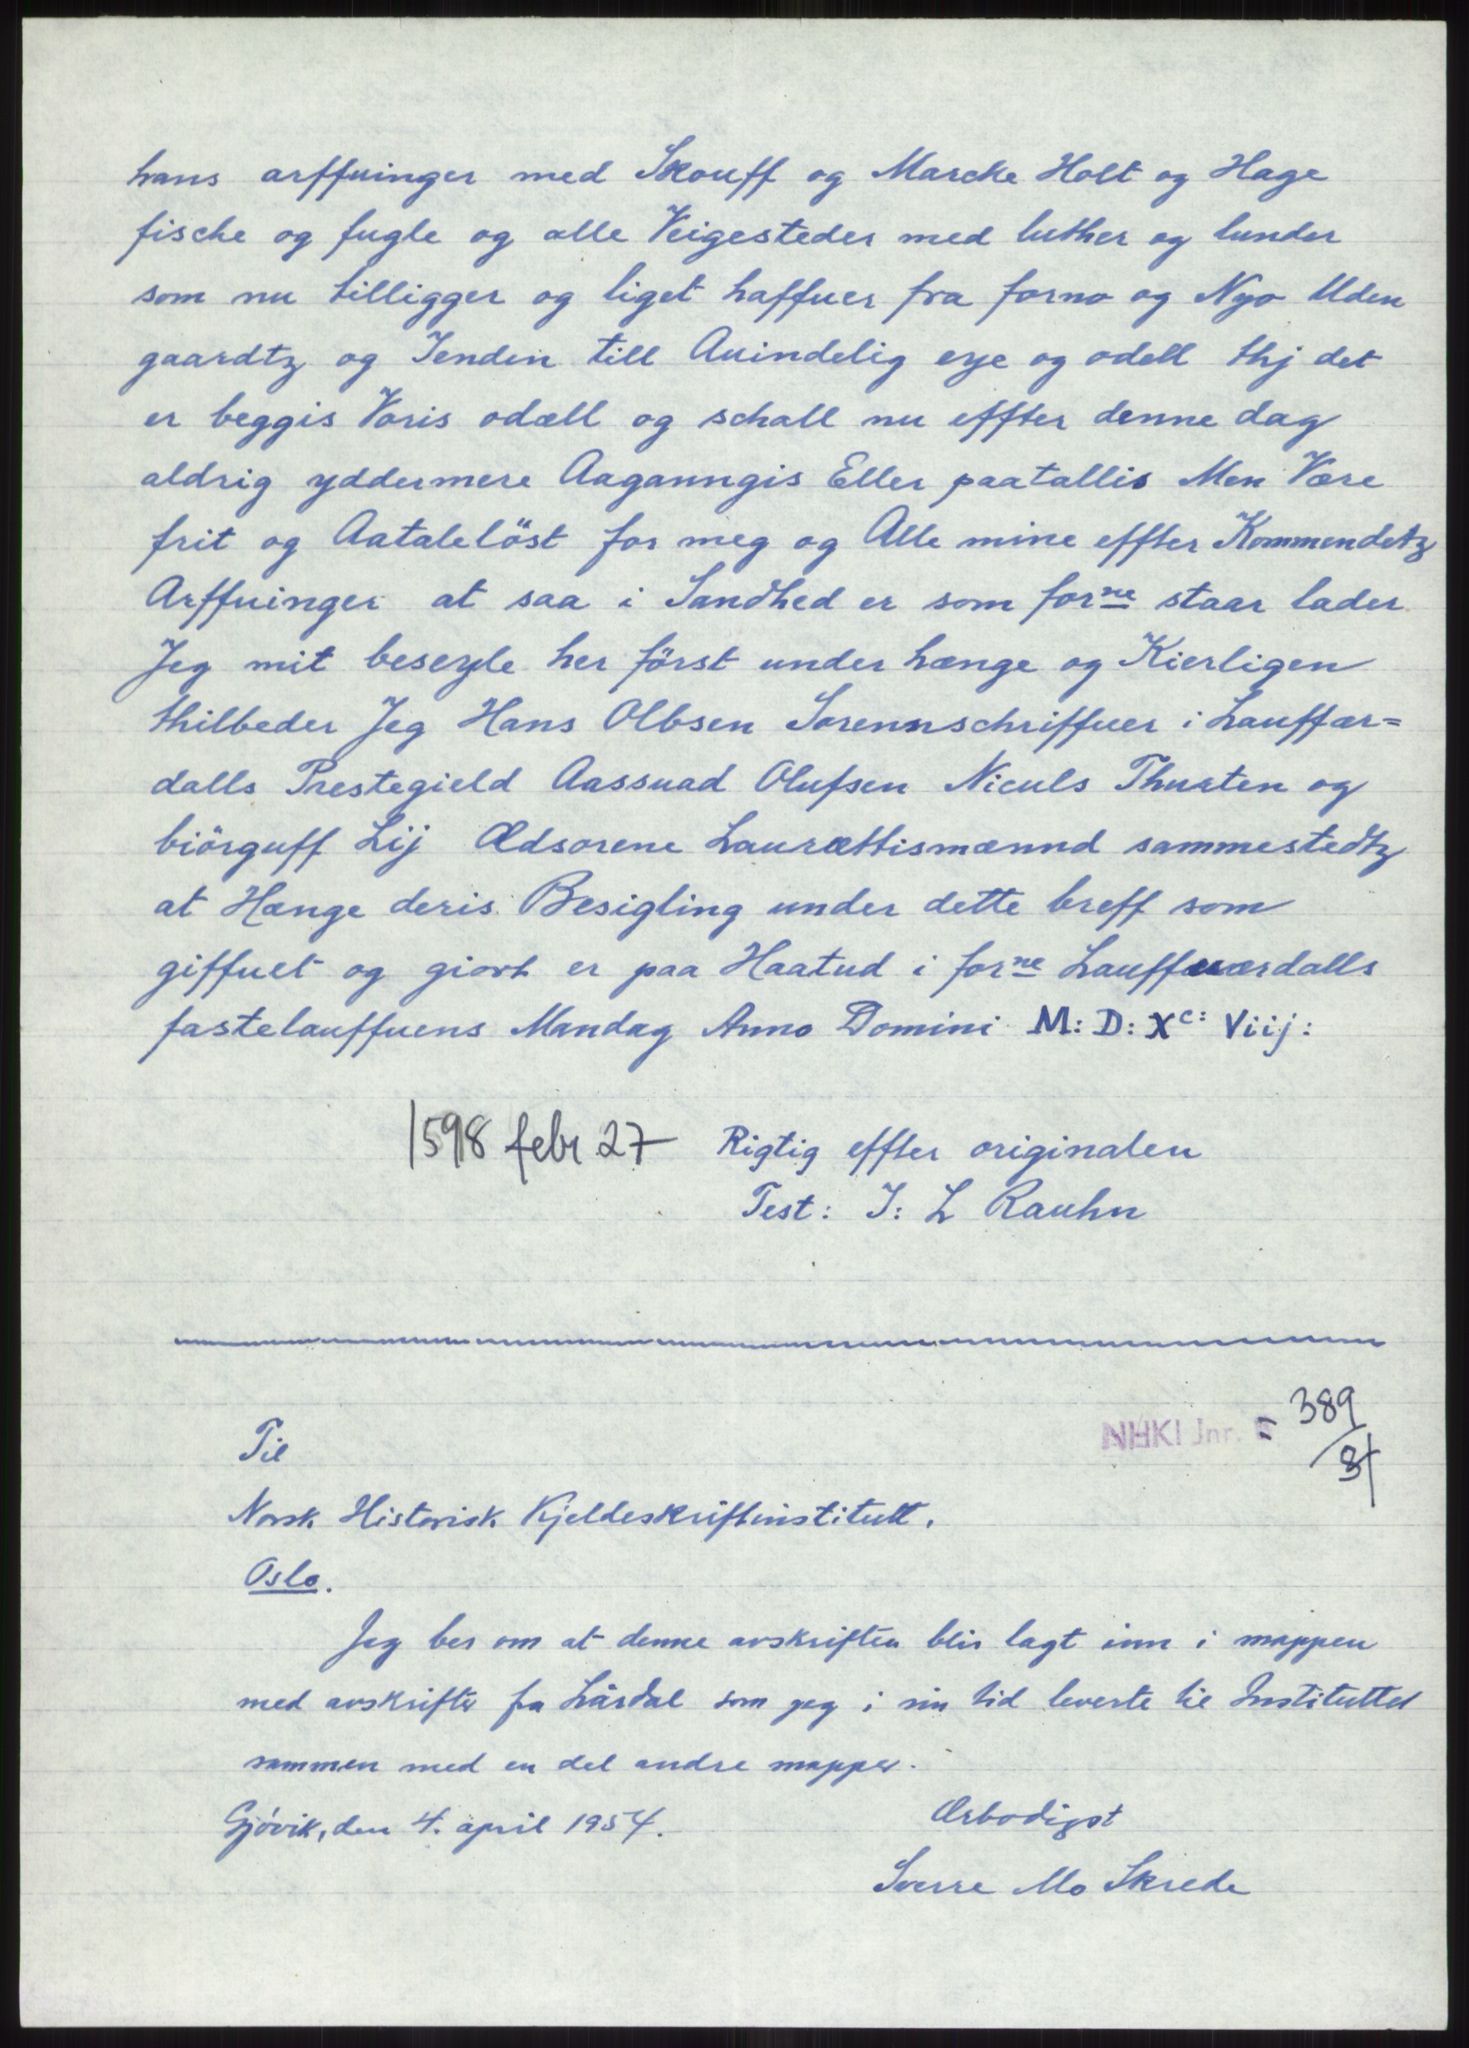 hans arffuinger med Skouff og Marcke Holt og Hage
fische og fugle og alle Veigesteder med luther og lunder
som nu tilligger og liget haffuer fra forno og Nyo Uden
gaardtz og Jenden till Auindelig eye og odell thj det
er beggis Voris odæll og schall nu effter denne dag
aldrig yddermere Aaganngis Eller paatallis Men Være
frit og Aataleløst for meg og Alle mine effter Kommendetz
Arffuinger at saa i Sandhed er som forne staar lader
Jeg mit beseyle her först under hænge og Kierligen
thilbeder Jeg Hans Olbsen Sorennschriffuer i Lauffær=
dalls Prestegield Aassuad Olufsen Niculs Thursten og
biörguff Lij Ædsorene Laurættismænnd sammestedtz
at Hænge deris Besigling under dette breff som
giffuet og giort er paa Haatud i forne Lauffuærdalls
fastelauffuens Mandag Anno Domini M: D: Xc: Viij:
1598 febr 27 Rigtig effter originalen
Test: J: L Rauhn
NHKI Jnr. 389/81
Til
Norsk Historisk Kjeldeskriftinstitutt.
Oslo.
Jeg ber om at denne avskriften blir lagt inn i mappen
med avskrifter fra Lårdal som jeg i sin tid leverte til Instituttet
sammen med en del andre mapper.
Gjövik, den 4. april 1954. Ærbødigst
Sverre Mo Skrede